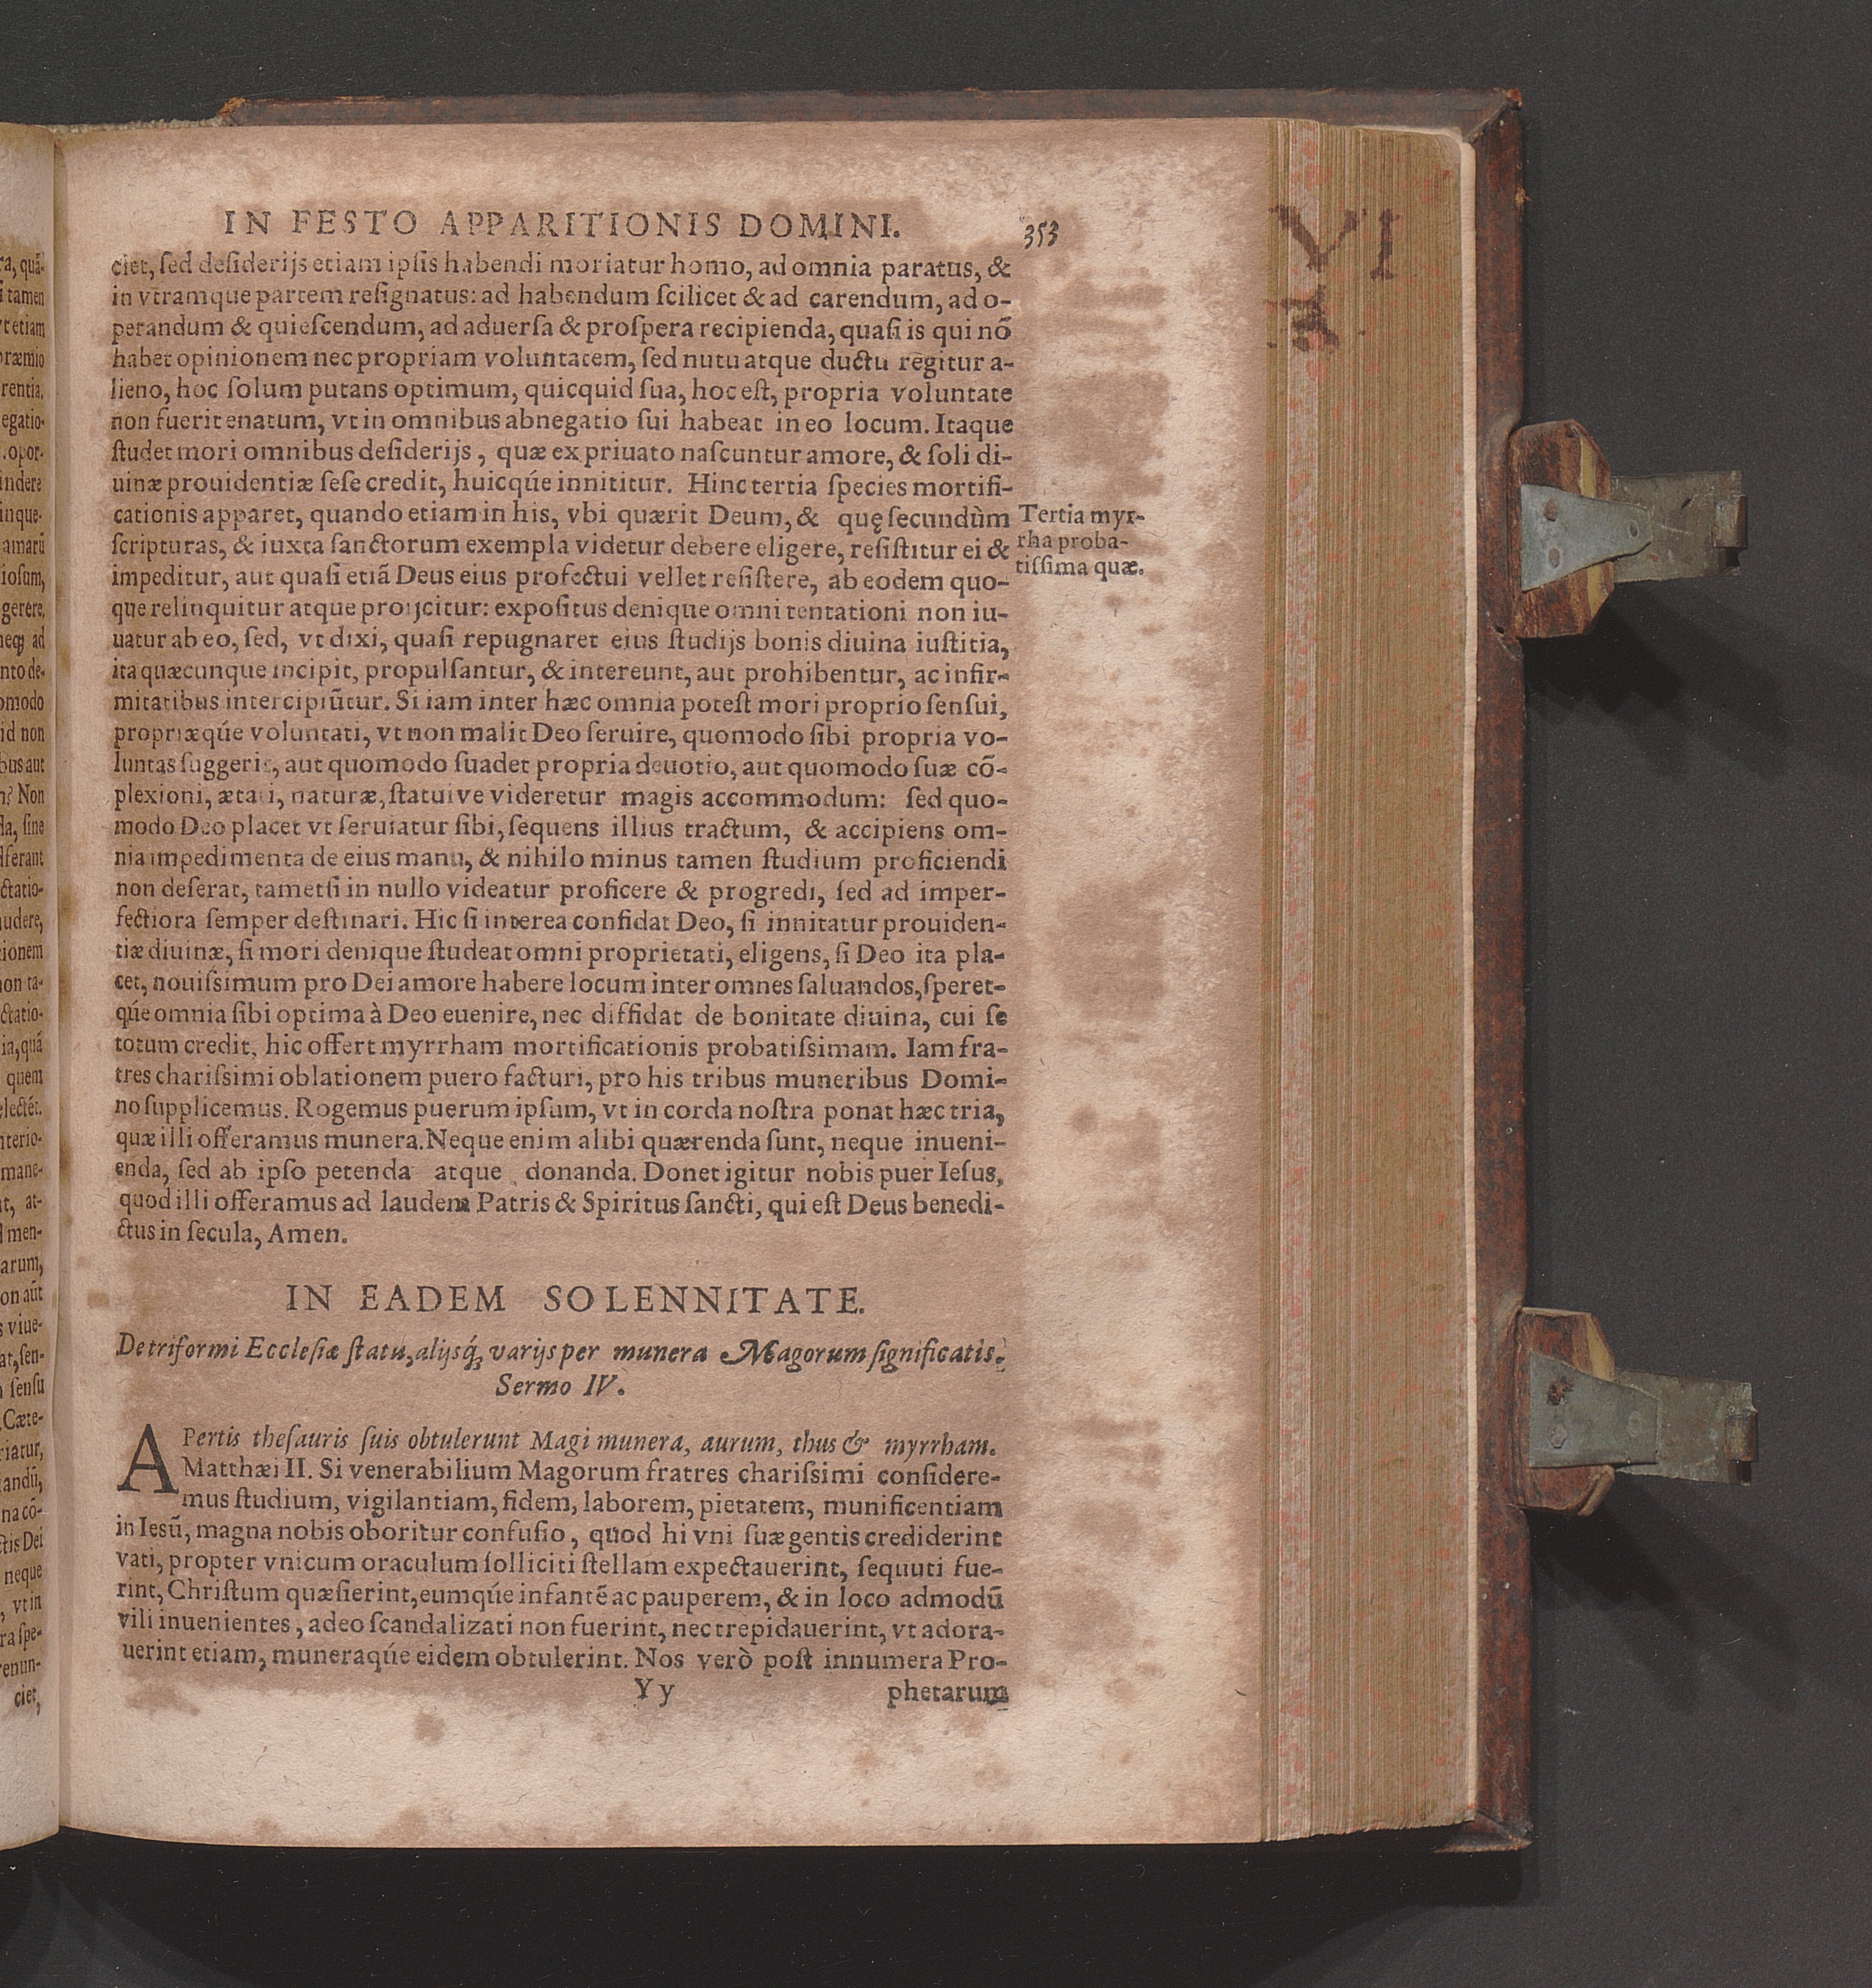 IN FESTO APPARITIONIS DOMINI. 353
ciet, ſed deſiderijs etiam ipſis habendi moriatur homo, ad omnia paratus, &
in vtramque partem reſignatus: ad habendum ſcilicet & ad carendum, ad o-
perandum & quieſcendum, ad aduerſa & proſpera recipienda, quaſi is qui nõ
habet opinionem nec propriam voluntatem, ſed nutu atque ductu regitur a-
lieno, hoc ſolum putans optimum, quicquid ſua, hoc eſt, propria voluntate
non fuerit enatum, vt in omnibus abnegatio ſui habeat in eo locum. Itaque
ſtudet mori omnibus deſiderijs, quæ ex priuato naſcuntur amore, & ſoli di-
uinæ prouidentiæ ſeſe credit, huicq́ue innititur. Hinc tertia ſpecies mortifi-
cationis apparet, quando etiam in his, vbi quærit Deum, & quę ſecundùm
ſcripturas, & iuxta ſanctorum exempla videtur debere eligere, reſiſtitur ei &
impeditur, aut quaſi etiã Deus eius profectui vellet reſiſtere, ab eodem quo-
que relinquitur atque proijcitur: expoſitus denique omni tentationi non iu-
uatur ab eo, ſed, vt dixi, quaſi repugnaret eius ſtudijs bonis diuina iuſtitia,
ita quæcunque incipit, propulſantur, & intereunt, aut prohibentur, ac infir-
mitatibus intercipiũtur. Si iam inter hæc omnia poteſt mori proprio ſenſui,
propriæq́ue voluntati, vt non malit Deo ſeruire, quomodo ſibi propria vo-
luntas ſuggerit, aut quomodo ſuadet propria deuotio, aut quomodo ſuæ cõ-
plexioni, ætati, naturæ, ſtatuive videretur magis accommodum: ſed quo-
modo Deo placet vt ſeruiatur ſibi, ſequens illius tractum, & accipiens om-
nia impedimenta de eius manu, & nihilo minus tamen ſtudium proficiendi
non deſerat, tametſi in nullo videatur proficere & progredi, ſed ad imper-
fectiora ſemper deſtinari. Hic ſi interea confidat Deo, ſi innitatur prouiden-
tiæ diuinæ, ſi mori denique ſtudeat omni proprietati, eligens, ſi Deo ita pla-
cet, nouiſsimum pro Dei amore habere locum inter omnes ſaluandos, ſperet-
q́ue omnia ſibi optima à Deo euenire, nec diffidat de bonitate diuina, cui ſe
totum credit, hic offert myrrham mortificationis probatiſsimam. Iam fra-
tres chariſsimi oblationem puero facturi, pro his tribus muneribus Domi-
no ſupplicemus. Rogemus puerum ipſum, vt in corda noſtra ponat hæc tria,
quæ illi offeramus munera. Neque enim alibi quærenda ſunt, neque inueni-
enda, ſed ab ipſo petenda atque donanda. Donet igitur nobis puer Ieſus,
quod illi offeramus ad laudem Patris & Spiritus ſancti, qui eſt Deus benedi-
ctus in ſecula, Amen.
Tertia myr-
rha proba-
tiſsima quæ.
IN EADEM SOLENNITATE.
De triformi Eccleſiæ ſtatu, alijsq́; varijs per munera Magorum ſignificatis.
Sermo IV.
APertis theſauris ſuis obtulerunt Magi munera, aurum, thus & myrrham.
Matthæi II. Si venerabilium Magorum fratres chariſsimi conſidere-
mus ſtudium, vigilantiam, fidem, laborem, pietatem, munificentiam
in Ieſũ, magna nobis oboritur confuſio, quod hi vni ſuæ gentis crediderint
vati, propter vnicum oraculum ſolliciti ſtellam expectauerint, ſequuti fue-
rint, Chriſtum quæſierint, eumq́ue infantẽ ac pauperem, & in loco admodũ
vili inuenientes, adeo ſcandalizati non fuerint, nec trepidauerint, vt adora-
uerint etiam, muneraq́ue eidem obtulerint. Nos verò poſt innumera Pro-
Yy phetarum